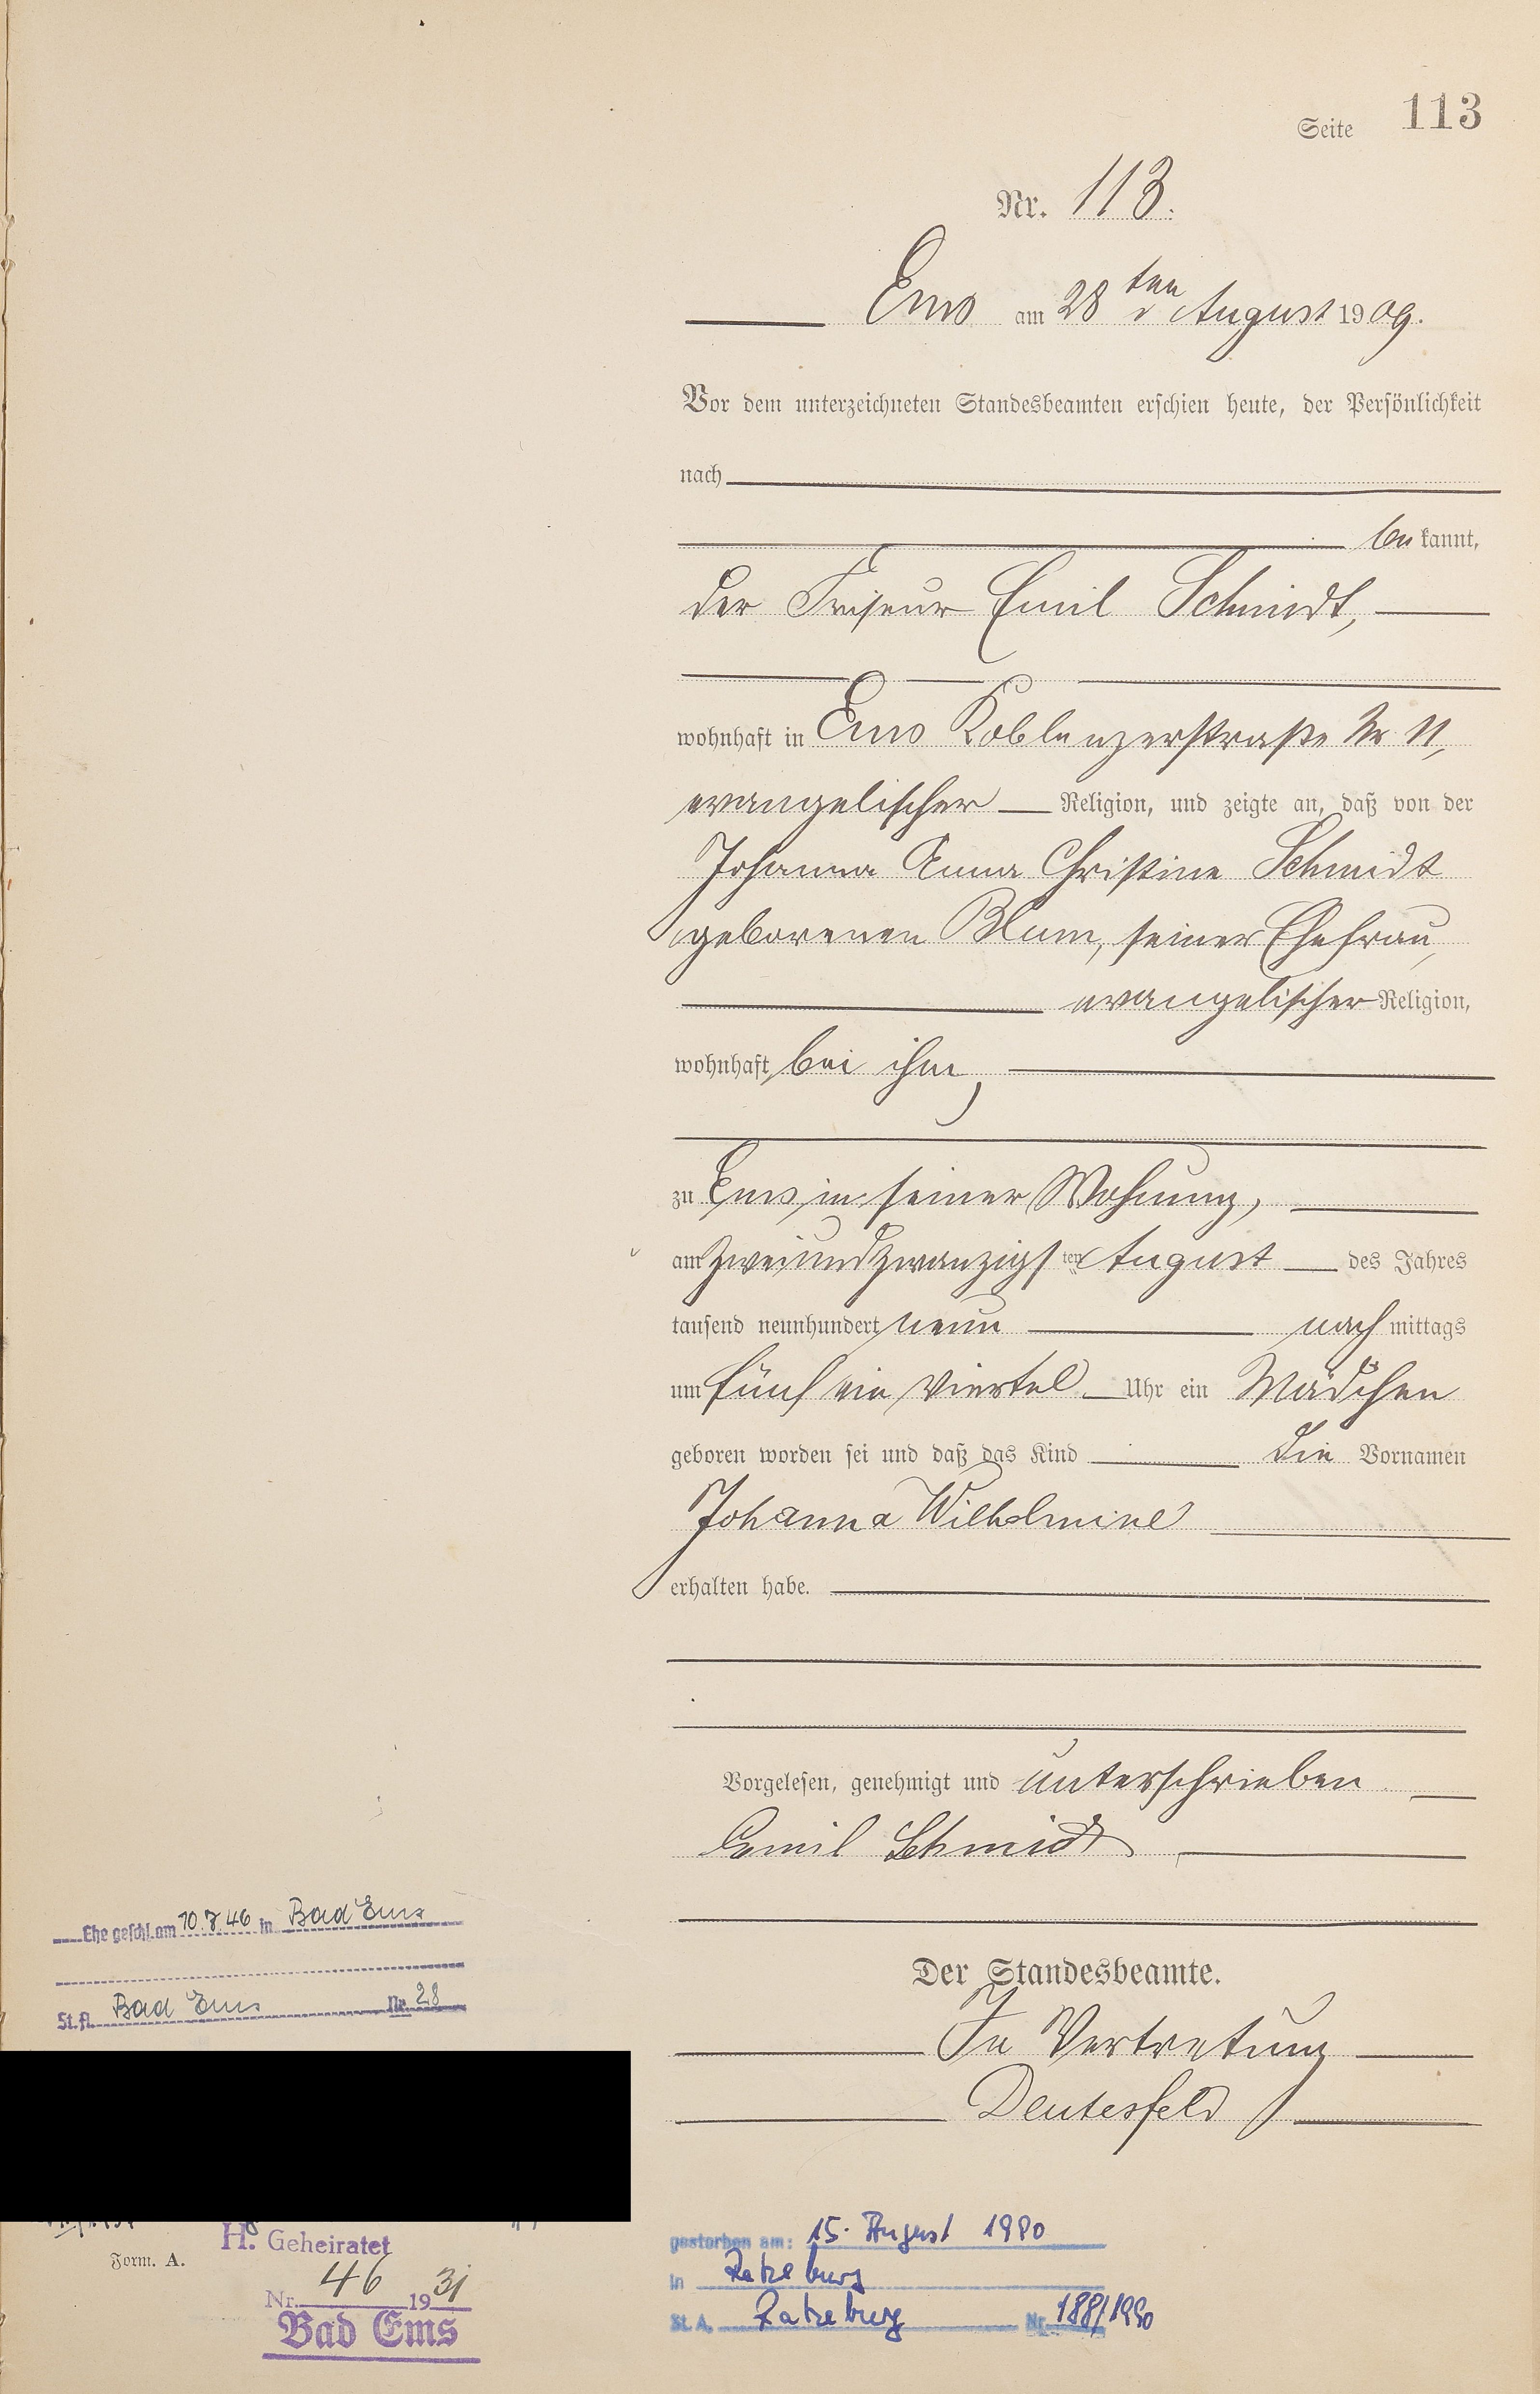 Seite 113
Nr. 113.
Ems am 28ten August 1909.
Vor dem unterzeichneten Standesbeamten erschien heute, der Persönlichkeit
nach
bekannt,
der Friseur Emil Schmidt,
wohnhaft in Ems Koblenzerstraße Nr 11,
evangelischer Religion, und zeigte an, daß von der
Johanna Anna Christine Schmidt
geborenen Blum, seiner Ehefrau,
evangelischer Religion,
wohnhaft bei ihm,
zu Ems in seiner Wohnung,
am zweiundzwanzigsten August des Jahres
tausend neunhundert neun nachmittags
um fünf ein viertel Uhr ein Mädchen
geboren worden sei und daß das Kind die Vornamen
Johanna Wilhelmine
erhalten habe.
Vorgelesen, genehmigt und unterschrieben
Emil Schmidt
Der Standesbeamte.
In Vertretung
Deutesfeld
Ehe geschl. am 10.7.46 in Bad Ems
St. A. Bad Ems Nr. 28
Form. A.
H. Geheiratet
Nr. 46 1931
Bad Ems
gestorben am: 15. August 1990
in Ratzeburg
St. A. Ratzeburg Nr. 188/1990